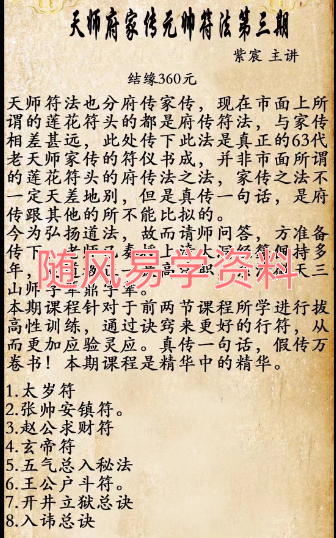 天师府家传元帅符法第三期
紫宸 主讲
结缘360元
天师符法也分府传家传，现在市面上所
谓的莲花符头的都是府传符法，与家传
相差甚远，此处传下此法是真正的63代
老天师家传的符仪书成，并非市面所谓
的莲花符头的府传法之法，家传之法不
一定天差地别，但是真传一句话，是府
传跟其他的所不能比拟的。
今为弘扬道法，故而请师问答，方准备
传下
年，
随风易学资料
山师
本期课程针对于前两节课程所学进行拔
高性训练，通过诀窍来更好的行符，从
而更加应验灵应。真传一句话，假传万
卷书！本期课程是精华中的精华。
1.太岁符
2.张帅安镇符。
3.赵公求财符
4.玄帝符
5.五气总入秘法
6.王公户斗符。
7.开井立狱总诀
8.入讳总诀